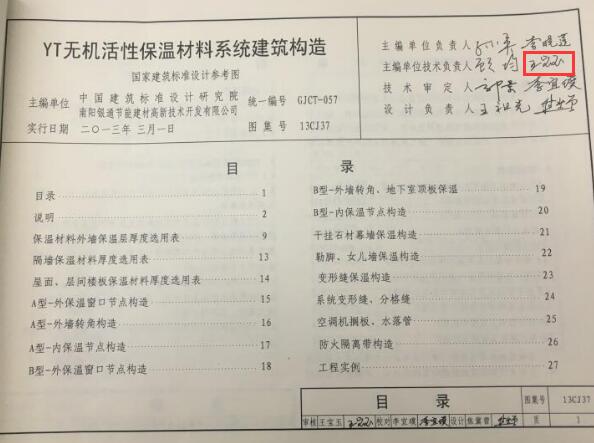 YT无机活性保温材料系统建筑构造
国家建筑标准设计参考图
主编单位 中国建筑标准设计研究院
南阳银通节能建材高新技术开发有限公司
统一编号 GJCT-057
实行日期 二〇一三年三月一日
图集号 13CJ37
主编单位负责人 李晓莲
主编单位技术负责人 顾均
技术审定人 李宜璞
设计负责人 王祖光
目录
目录 1
说明 2
保温材料外墙保温层厚度选用表 9
隔墙保温材料厚度选用表 13
屋面、层间楼板保温材料厚度选用表 14
A型-外保温窗口节点构造 15
A型-外墙转角构造 16
A型-内保温节点构造 17
B型-外保温窗口节点构造 18
B型-外墙转角、地下室顶板保温 19
B型-内保温节点构造 20
干挂石材幕墙保温构造 21
勒脚、女儿墙保温构造 22
变形缝保温构造 23
系统变形缝、分格缝 24
空调机搁板、水落管 25
防火隔离带构造 26
工程实例 27
目录 图集号 13CJ37
审核 王宝玉 校对 李宜璞 设计 焦冀曾 页 1